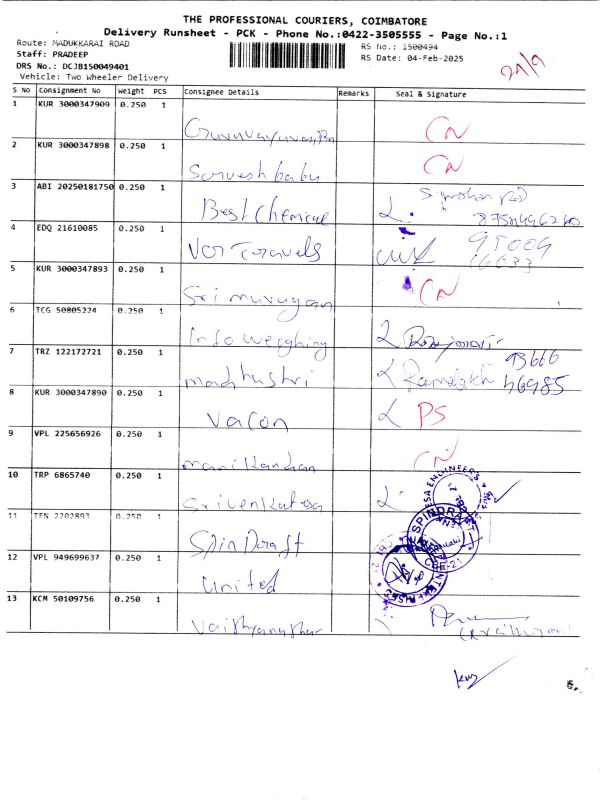 THE PROFESSIONAL COURIERS, COIMBATORE
Delivery Runsheet - PCK - Phone No.:0422-3505555 - Page No.:1
Route: MADUKKARAI ROAD
RS No.: 1500494
Staff: PRADEEP
RS Date: 04-Feb-2025
DRS No.: DCJB150049401
Vehicle: Two Wheeler Delivery
S No Consignment No Weight PCS Consignee Details Remarks Seal & Signature
1 KUR 3000347909 0.250 1
CN
2 KUR 3000347898 0.250 1
Sarvesh babu CN
3 ABI 20250181750 0.250 1
Best Chemical
4 EDQ 21610085 0.250 1
VOR Travels 95009
5 KUR 3000347893 0.250 1
Sri murugan CN
6 TCG 50805224 0.250 1
Info weighing
7 TRZ 122172721 0.250 1 93666
madhushri 46985
8 KUR 3000347890 0.250 1
Vacon PS
9 VPL 225656926 0.250 1
manikandan CN
10 TRP 6865740 0.250 1
Srivenkatesa
11 TEN 2202893 0.250 1
SpinDraft SPINDRAFT
12 VPL 949699637 0.250 1 CBE-21
United
13 KCM 50109756 0.250 1